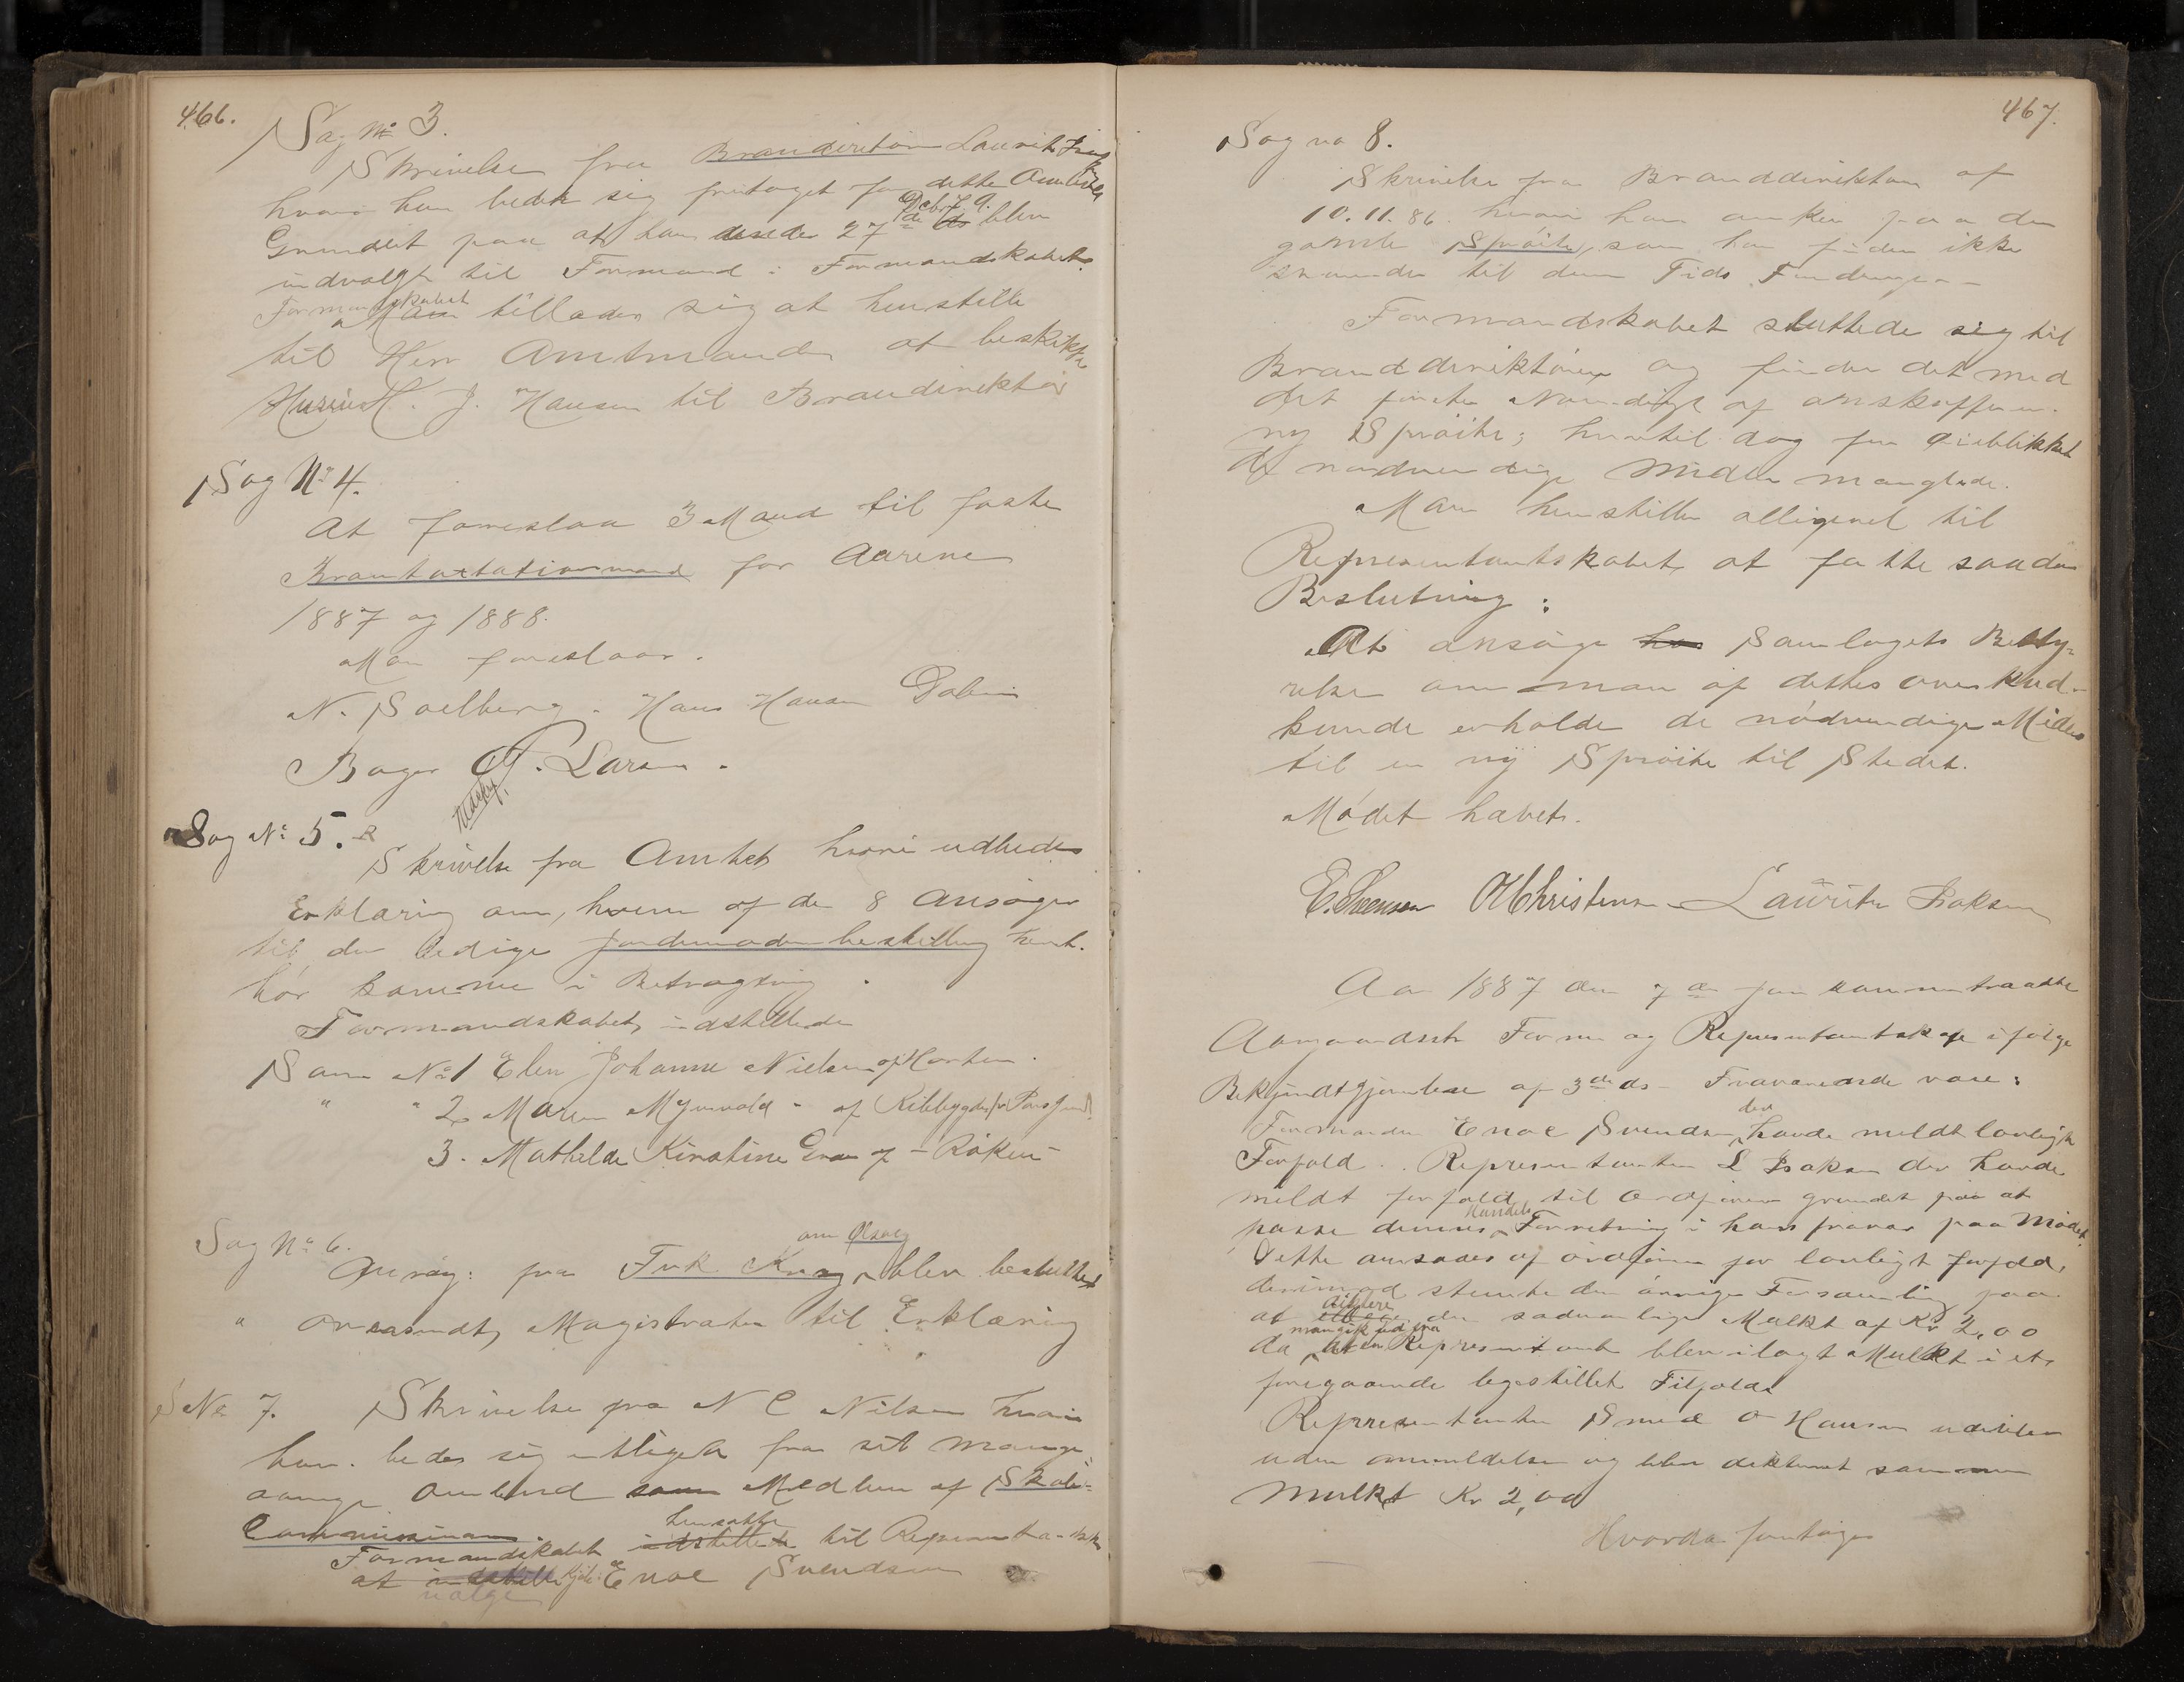 466.
Sag No 3.
Skrivelse fra Brandirektør Laurits
hvori han beder sig fritaget for dette
Decbr f. A.
Grundet paa at han 27de ds blev
indvalgt til Formand i Formandskabet.
Formandskabet
Man tillader sig at henstille
til Herr Amtmanden at beskikke
H. J. Hansen til Brandirektør
Sag No 4.
At foreslaa 3 Mand til faste
for Aarene
1887 og 1888.
Man foreslaar.
N. Solberg. Hans Hansen
Bager A. Larsen.
Sag No 5.
Skrivelse fra Amtet hvori udbedes
Erklæring om, hvem af de 8 Ansøger
til den ledige Jordemoderbestilling
bør komme i Betragtning.
Formandskabet indstillede
Som No 1 Elen Johanne Nielsen af Horten.
" " 2. Maren af
3. Mathilde Kirstine af - Røken -
Sag No 6.
fra blev besluttet
" oversendt Magistraten til Erklæring
S No 7. Skrivelse fra N C Nilsen hvori
han bedes sig fra sit mange
aarige som Medlem af Skole-
Commissionen.
hensatte
Formandskabet indstillede til
at indstille Enoc Svendsen
vælge
467.
Sag no 8.
Skrivelse fra Branddirektøren af
10.11.86. hvori han anker paa den
gamle Sprøite, som han finder ikke
svarende til denne Tids Fordringer -
Formandskabet sluttede sig til
Branddirektøren og finder det med
det første Nødvendigt at anskaffe en
ny Sprøite; hvortil dog for øieblikket
de nødvendige Midler manglede.
Man henstiller alligevel til
Representantskabet at fatte saadan
Beslutning:
At ansøge hos Samlagets Besty-
relse om man af dettes overskud
kunde erholde de nødvendige Midler
til en ny Sprøite til Stedet.
Mødet hævet.
E. Svensen O Christensen Lauritz Isaksen
Aar 1887 den 7de Jan sammentraadte
Aasgaardstr. Form og Representantskab ifølge
Bekjendtgjørelse af 3de ds - Fraværende vare:
der
Formanden Enoc Svendsen havde meldt lovligt
Forfald. Representanten L Isaksen der havde
meldt forfald til Ordføreren grundet paa at
Handels
passe dennes Forretning i hans fravær paa Mødet.
Dette ansaaes af ordføreren for lovligt forfald,
derimod stemte den øvrige Forsamling paa
diktere
at den sædvanlige Mulkt af Kr 2,00
man gik ud fra
da at en Representant blev ilagt Mulkt i et
foregaaende ligestillet Tilfælde
Representanten Smed O Hansen udeblev
uden anmeldelse og blev dikteret samme
Mulkt Kr 2,00
Hvorda foretoges